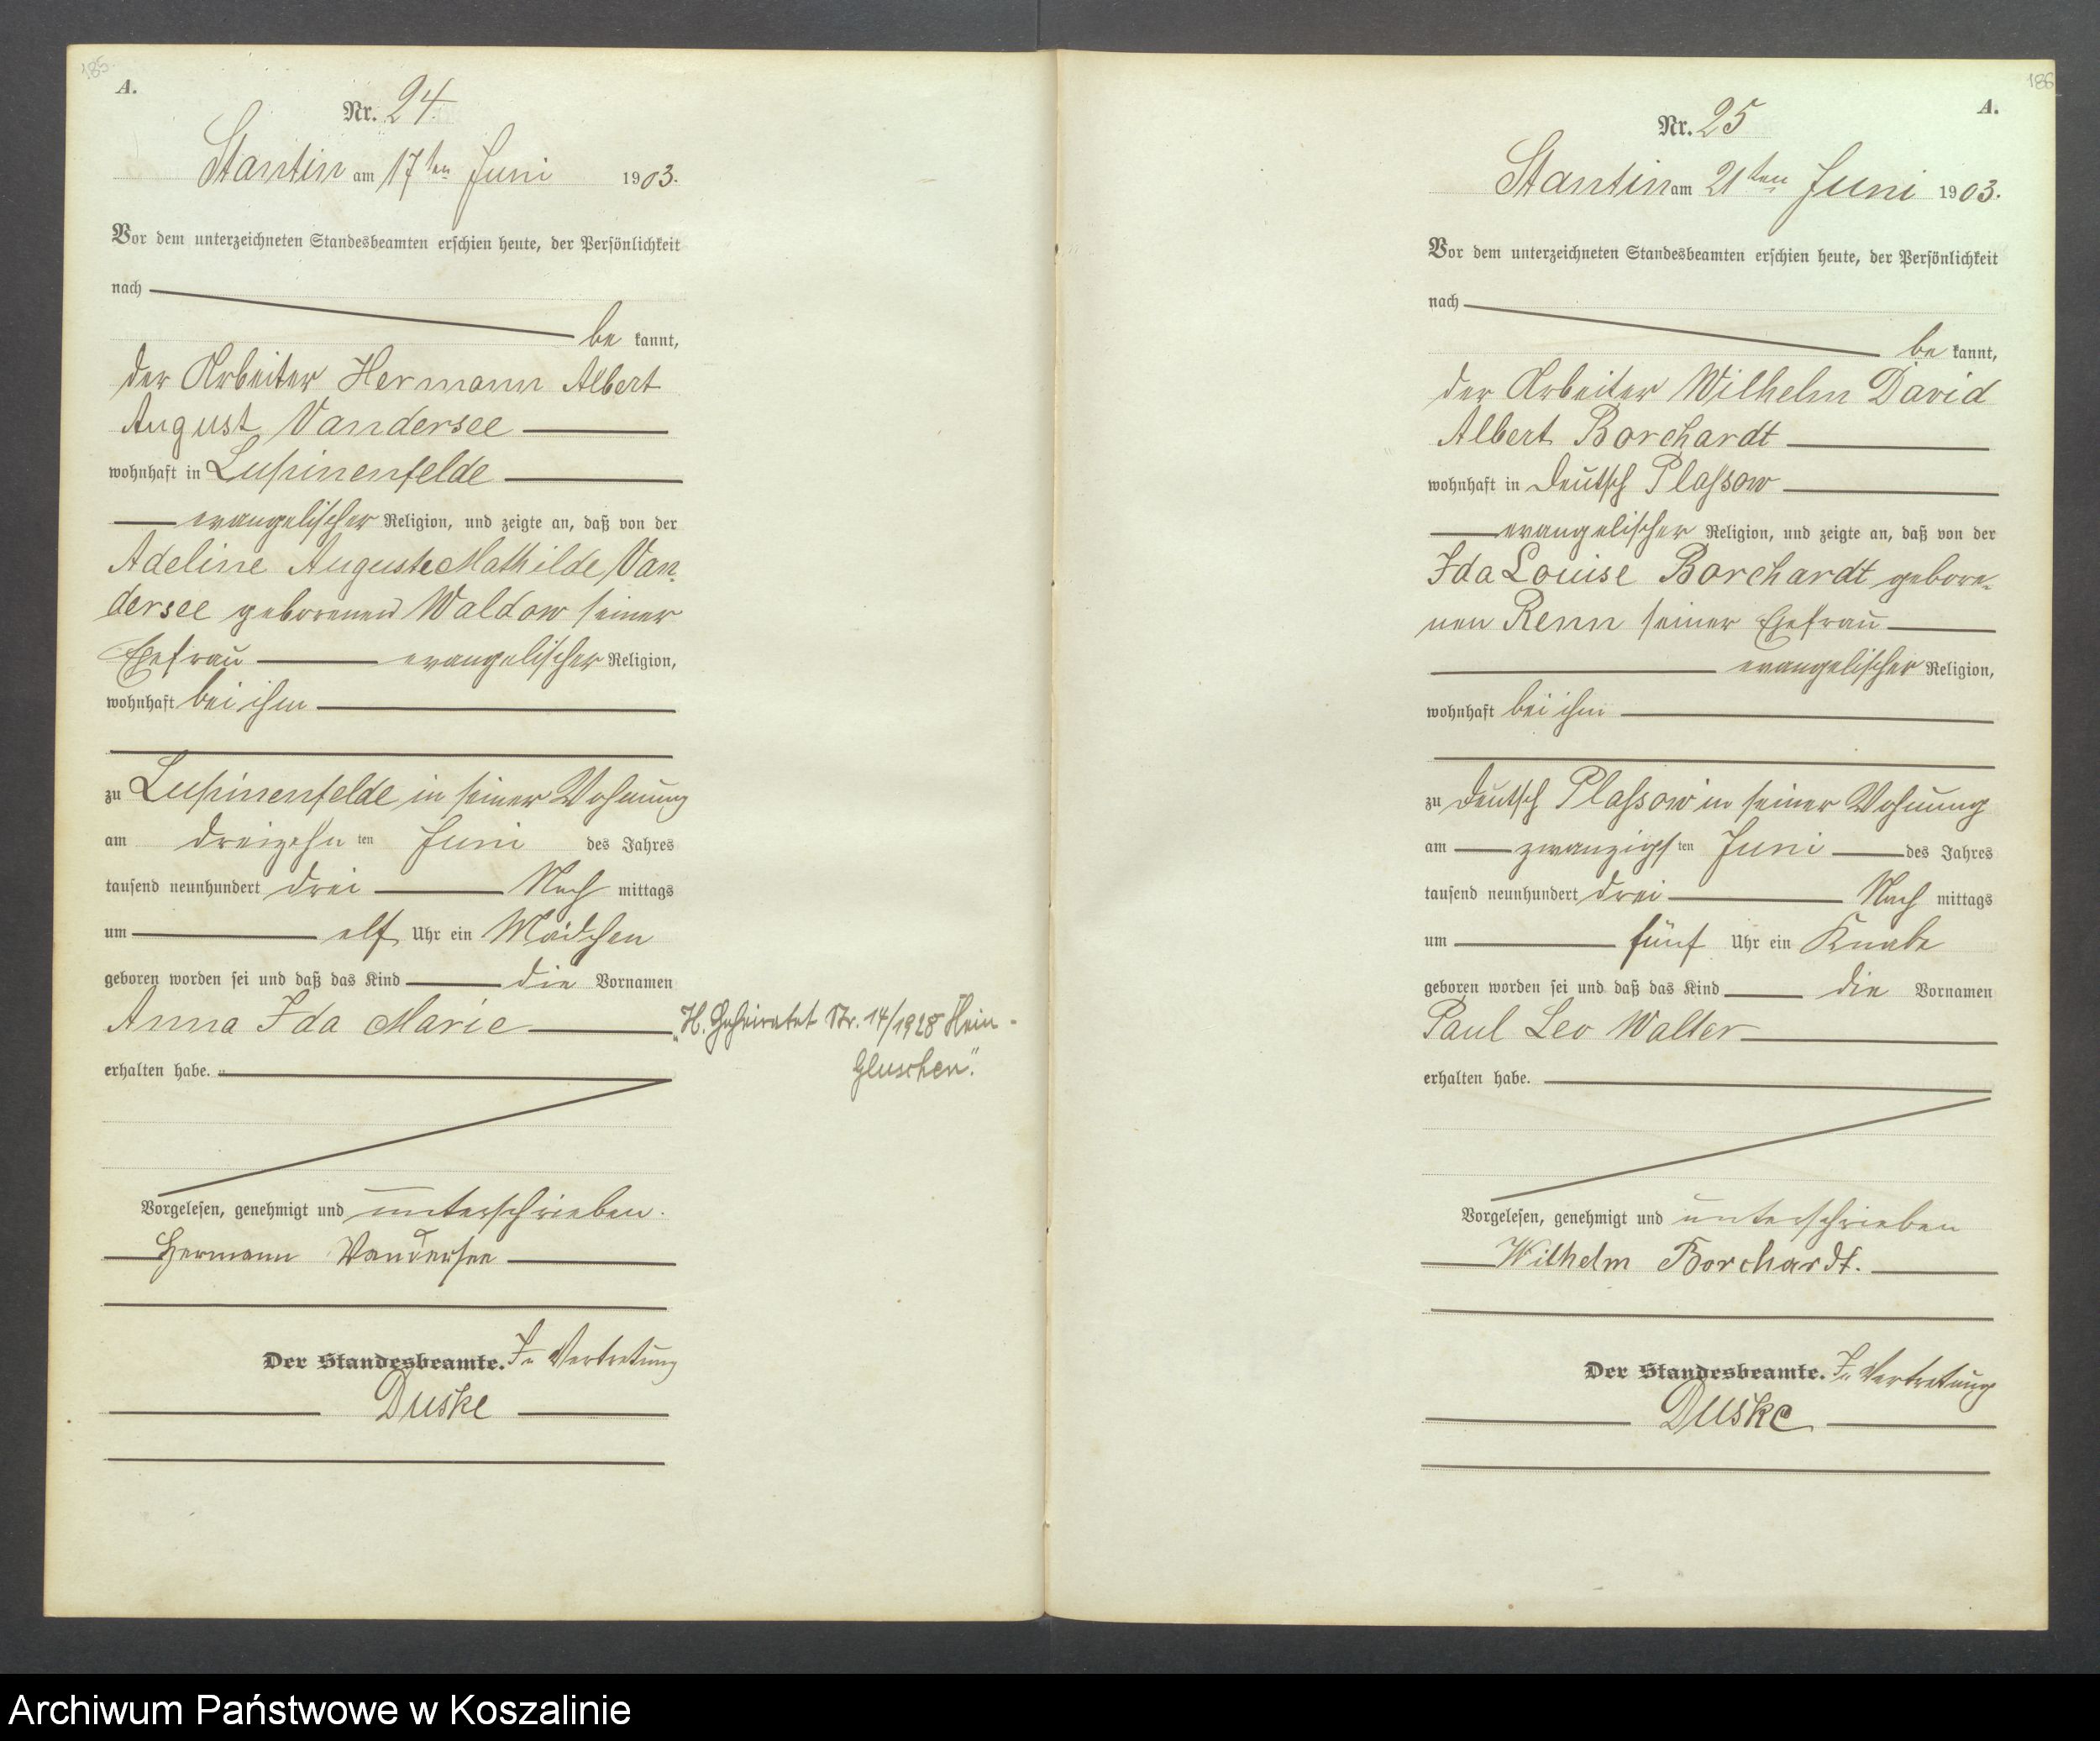 185.
A.
Nr. 24.
Stantin am 17ten Juni 1903.
Vor dem unterzeichneten Standesbeamten erschien heute, der Persönlichkeit
nach
be kannt,
der Arbeiter Hermann Albert
August Vandersee
wohnhaft in Lupinenfelde
evangelischer Religion, und zeigte an, daß von der
Adeline Auguste Mathilde Van-
dersee geborenen Waldow seiner
Ehefrau evangelischer Religion,
wohnhaft bei ihm
zu Lupinenfelde in seiner Wohnung
am dreizehn ten Juni des Jahres
tausend neunhundert drei Nach mittags
um elf Uhr ein Mädchen
geboren worden sei und daß das Kind die Vornamen
Anna Ida Marie
erhalten habe.
"H. Geheiratet Nr. 14/1928 Klein-
Gluschen".
Vorgelesen, genehmigt und unterschrieben.
Hermann Vandersee
Der Standesbeamte. In Vertretung
Duske
186
A.
Nr. 25
Stantin am 21ten Juni 1903.
Vor dem unterzeichneten Standesbeamten erschien heute, der Persönlichkeit
nach
be kannt,
der Arbeiter Wilhelm David
Albert Borchardt
wohnhaft in Deutsch Plassow
evangelischer Religion, und zeigte an, daß von der
Ida Louise Borchardt gebore-
nen Renn seiner Ehefrau
evangelischer Religion,
wohnhaft bei ihm
zu Deutsch Plassow in seiner Wohnung
am zwanzigs ten Juni des Jahres
tausend neunhundert drei Nach mittags
um fünf Uhr ein Knabe
geboren worden sei und daß das Kind die Vornamen
Paul Leo Walter
erhalten habe.
Vorgelesen, genehmigt und unterschrieben
Wilhelm Borchardt.
Der Standesbeamte. In Vertretung
Duske
Archiwum Państwowe w Koszalinie